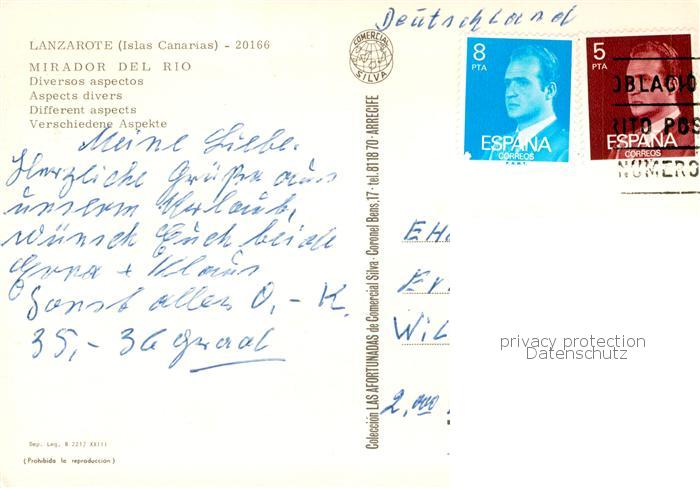 LANZAROTE (Islas Canarias) - 20166
MIRADOR DEL RIO
Diversos aspectos
Aspects divers
Different aspects
Verschiedene Aspekte
Meine Liebe.
Herzliche Grüße aus
unserm Urlaub,
wünsch Euch beide
+ Klaus
Sonst alles O,- K.
35,- 36 Graad
Dep. Leg. B 2217 XXIII
(Prohibida la reproducción)
COMERCIAL SILVA
Colección LAS AFORTUNADAS de Comercial Silva - Coronel Bens, 17 - tel. 81 18 70 - ARRECIFE
Deutschland
8 PTA
ESPAÑA
CORREOS
5 PTA
ESPAÑA
CORREOS
OBLACIO
RITO POS
NUMERO
EH
WIL
2,000
privacy protection
Datenschutz